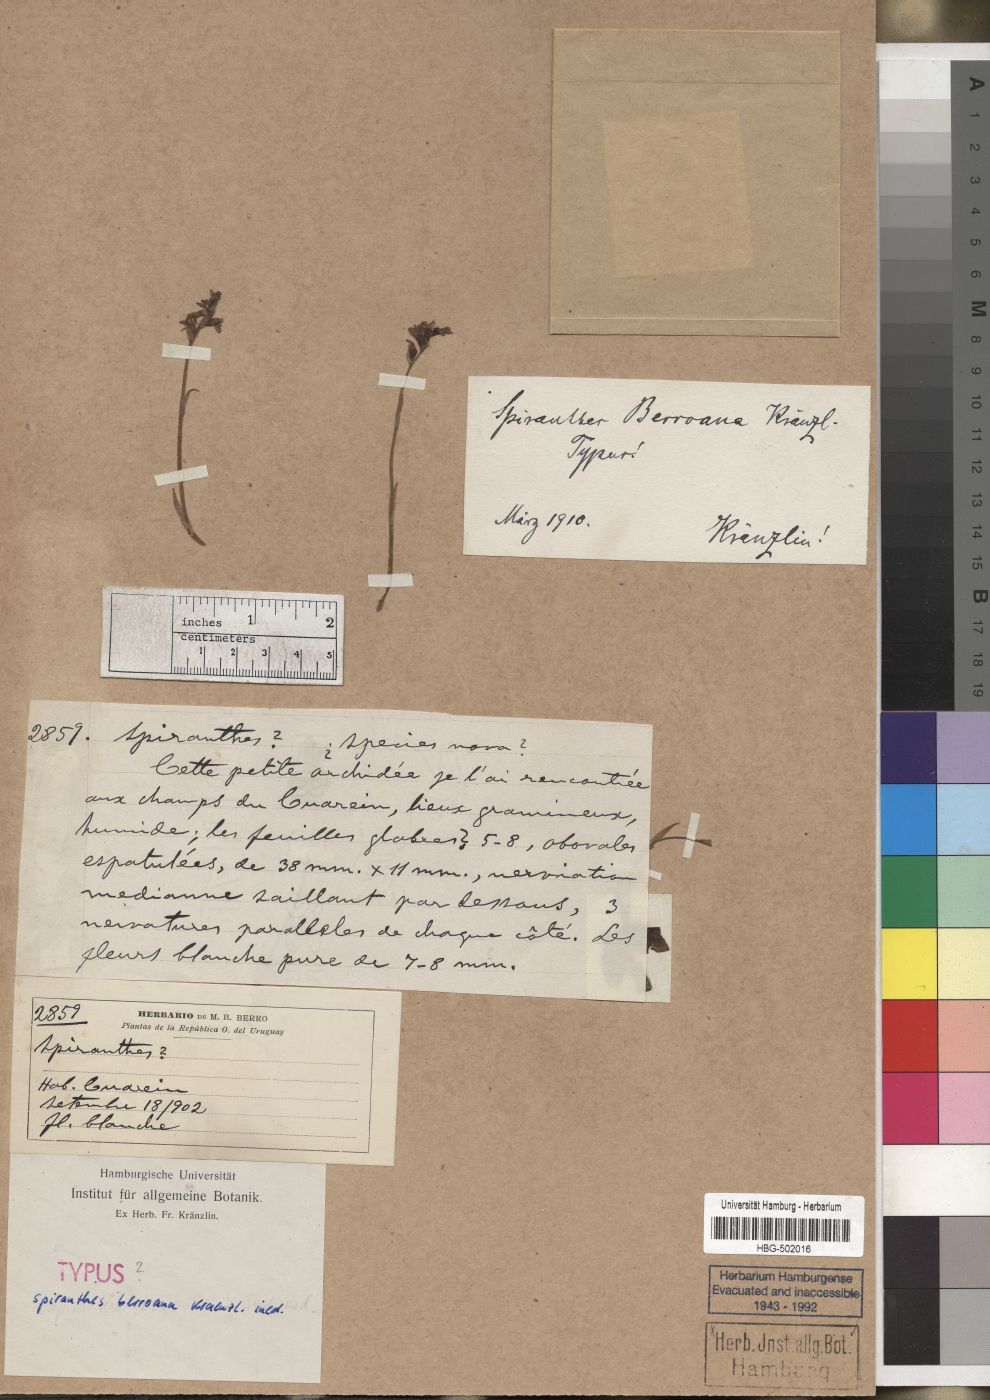 Spiranthes Berroana Kränzl.
Typus!
März 1910.
Kränzlin!
inches 1 2
centimeters
1 2 3 4 5
2859. Spiranthes? ¿Species nova?
Cette petite orchidée je l'ai rencontrée
aux champs du Cuarein, lieux gramineux,
humide; les feuilles glabres, 5-8, obovales
espatulées, de 38 mm. x 11 mm., nervriation
medianne saillant par dessous, 3
nervatures paralleles de chaque côté. Les
fleurs blanche pure de 7-8 mm.
2859
HERBARIO DE M. B. BERRO
Plantas de la República O. del Uruguay
Spiranthes?
Hab. Cuarein
Setembre 18/902
fl. blanche
Hamburgische Universität
Institut für allgemeine Botanik.
Ex Herb. Fr. Kränzlin.
TYPUS ?
spiranthes berroana Kraenzl. ined.
Universität Hamburg - Herbarium
HBG-502016
Herbarium Hamburgense
Evacuated and inaccessible
1943 - 1992
Herb. Jnst. allg. Bot.
Hamburg
A
1
2
3
4
5
6
M
8
9
10
11
12
13
14
15
B
17
18
19